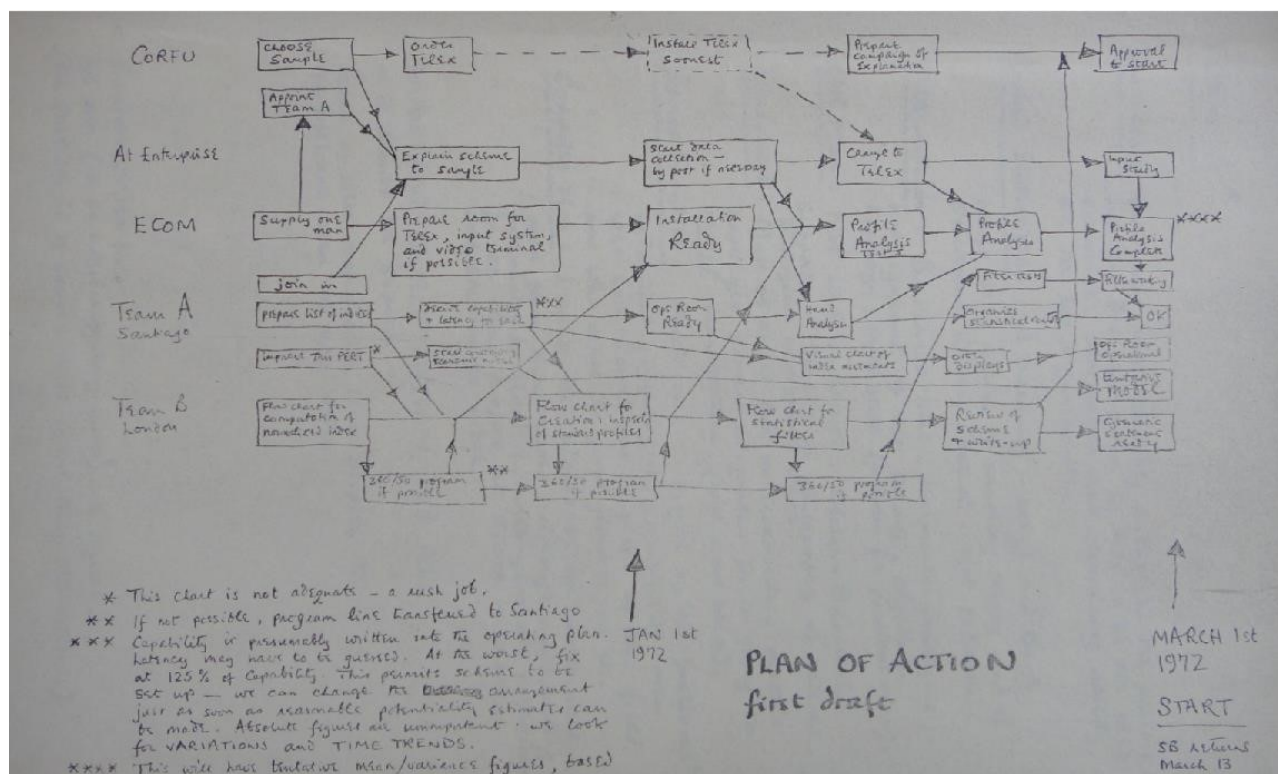 CORFU
CHOOSE
Sample
Order
TELEX
Install TELEX
Soonest
Prepare
Campaign of
Explanation
Approval
to START
Appoint
TEAM A
At Enterprise
Explain scheme
to sample
Start data
collection –
by post if necessary
Change to
TELEX
Input
Steady
ECOM
Supply one
man
Prepare room for
TELEX, input system,
and video terminal
if possible.
Installation
Ready
Profile
Analysis
Tests
Profile
Analysis
Profile
Analysis
Complete
****
join in
Filter tests
Filter working
Team A
Santiago
prepare list of indices
+ latency for each
***
Ops Room
Ready
Hand
Analysis
Organize
statistical filter
OK
improve this PERT
*
Start
Visual chart of
index movements
Displays
Ops Room
Operational
Tentative
MODEL
Team B
London
Flow chart for
computation of
index
Flow chart for
Creation + inspection
of standard profiles
Flow chart for
statistical
filter
Review of
Scheme
+ write-up
Cybernetic
sentences
ready
360/50 program
if possible
**
360/50 program
if possible
360/50 program
if possible
* This chart is not adequate – a rush job.
** If not possible, program line transferred to Santiago
*** Capability is presumably written into the operating plan.
Latency may have to be guessed. At the worst, fix
at 125% of Capability. This permits scheme to be
set up – we can change the arrangement
just as soon as reasonable potentiality estimates can
be made. Absolute figures are unimportant. We look
for VARIATIONS and TIME TRENDS.
**** This will have tentative mean/variance figures, based
JAN 1st
1972
PLAN OF ACTION
first draft
MARCH 1st
1972
START
SB returns
March 13